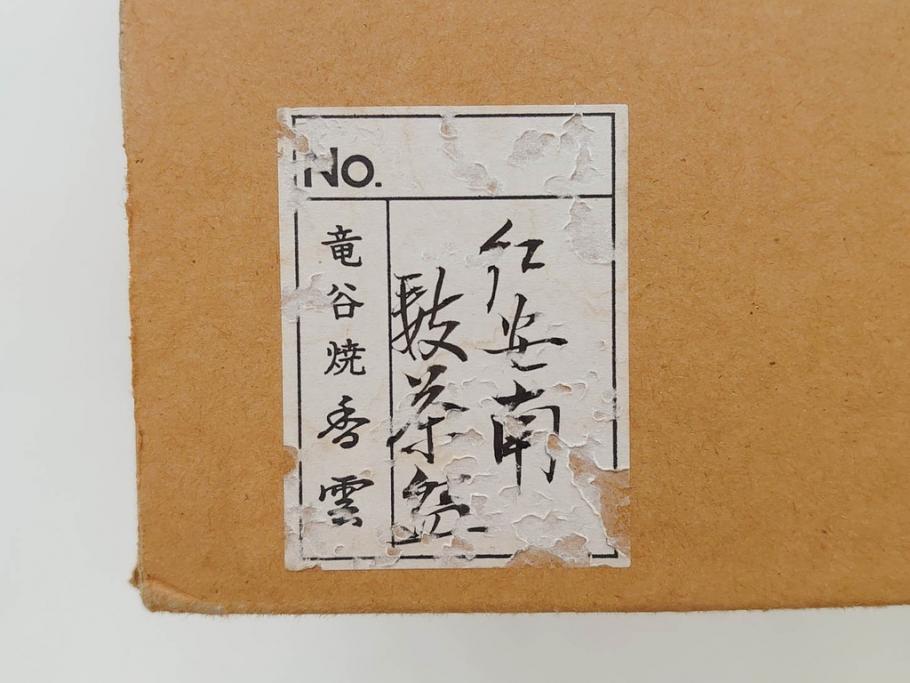 No.
紅安南
数茶盌
竜谷焼 香雲